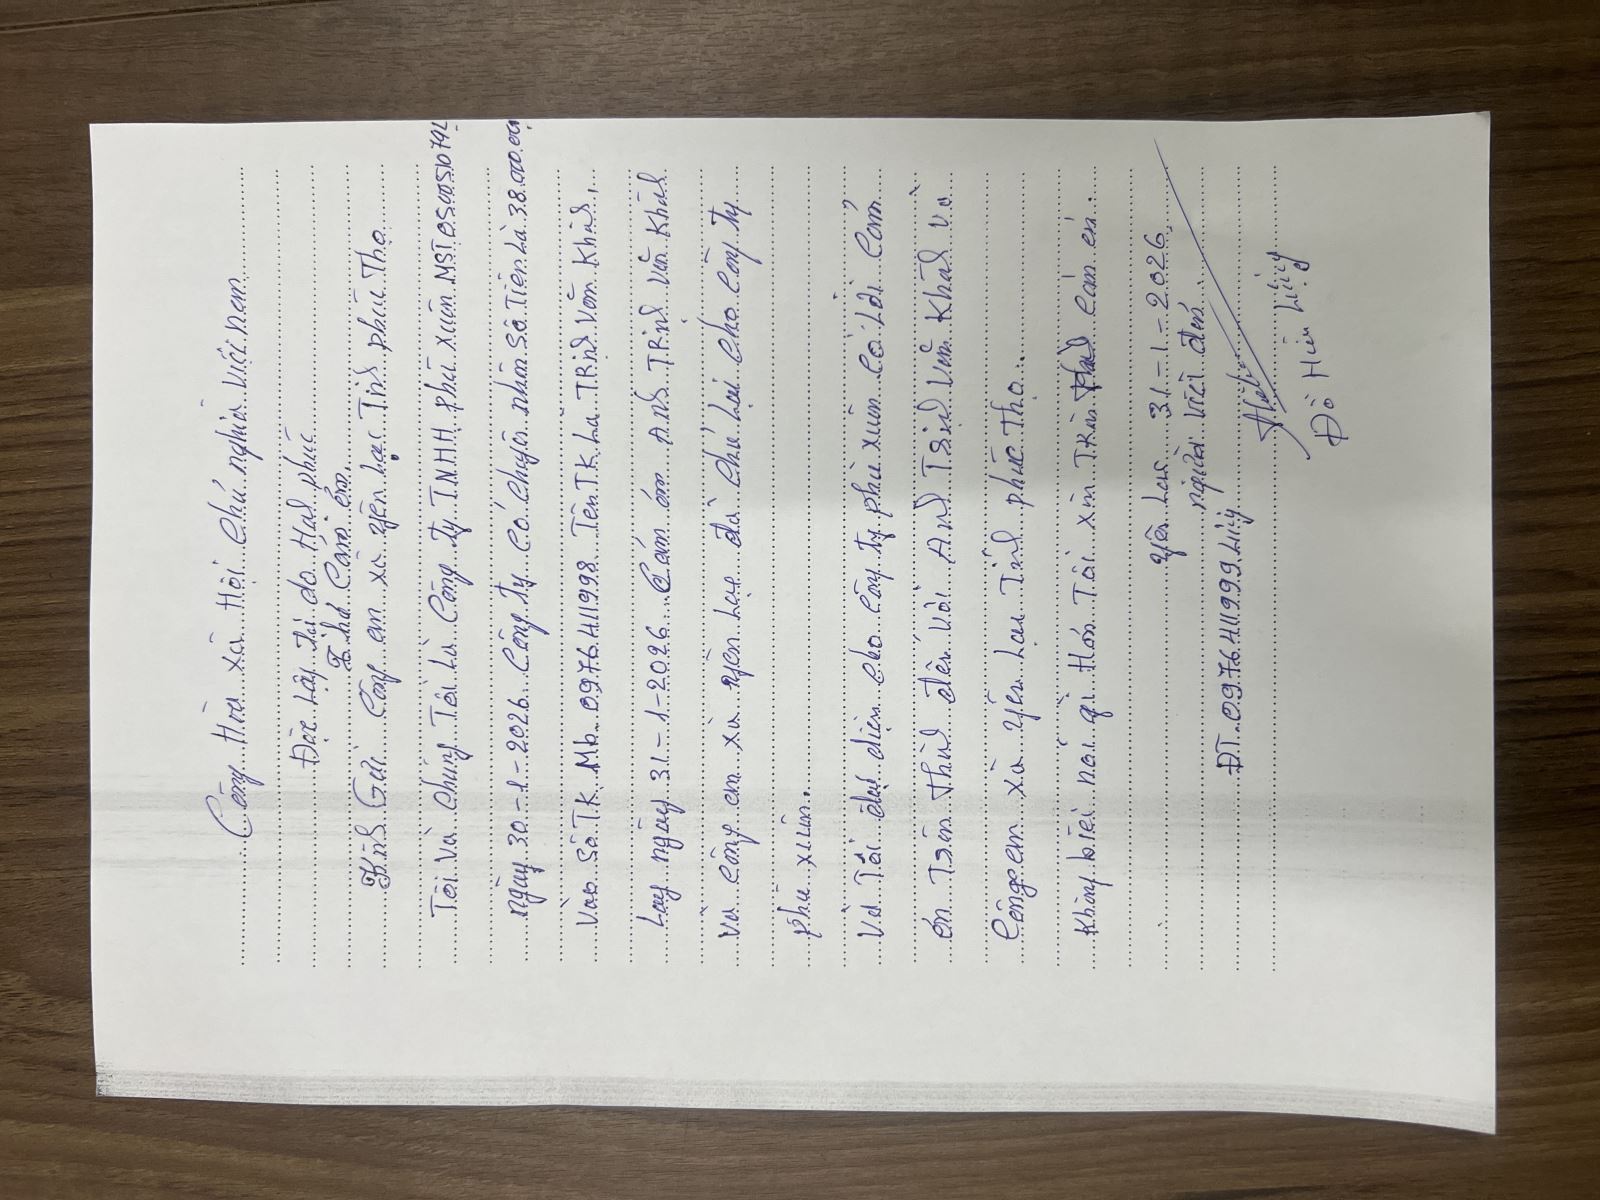 Cộng Hòa xã Hội chủ nghĩa Việt nam
Độc lập tự do Hạnh phúc
Thư Cảm ơn
Kính Gửi Công an xã Yên Lạc Tỉnh phú Thọ
Tôi và chúng Tôi là Công ty TNHH phú xuân MST
ngày 30-1-2026 Công ty có chuyển nhầm số Tiền là 38.000.000
vào số TK Mb 0976411998 Tên TK là TRịnh Văn Khánh,
Lay ngày 31-1-2026 Cảm ơn Anh TRịnh Văn Khánh
và Công an xã Yên Lạc đã chả lại cho Công ty
phú xuân.
Và Tôi đại diện cho Công ty phú xuân có Lời Cảm
ơn Trân thành đến với Anh Trịnh Văn Khánh và
Công an xã Yên Lạc Tỉnh phúc Thọ.
Không biết nói gì Hơn Tôi xin Trân thành Cảm ơn.
Yên Lạc 31-1-2026
người viết đơn
ĐT.0976411999 Lưỹ
Đỗ Hữu Lưỹ